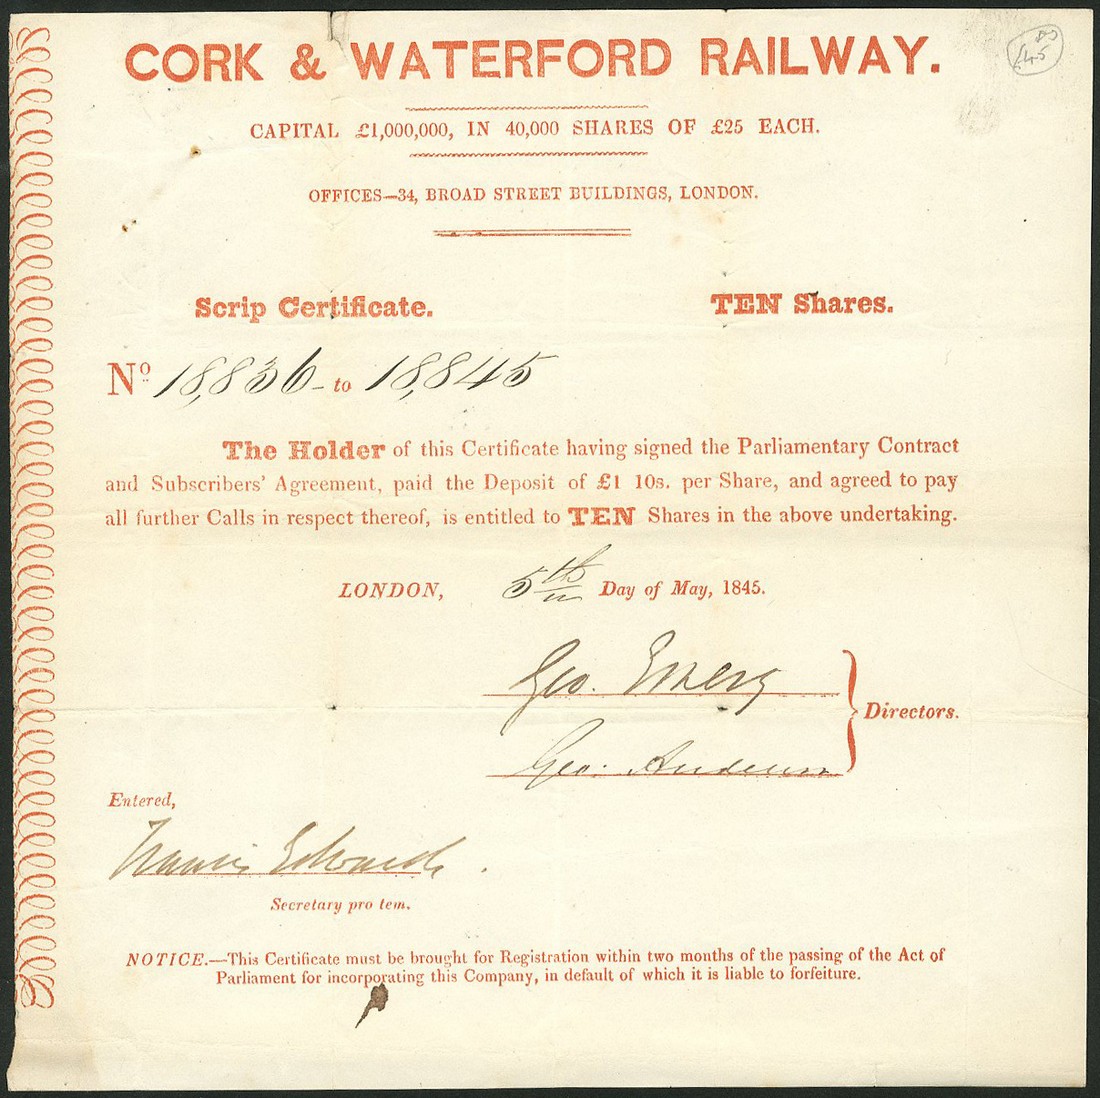 CORK & WATERFORD RAILWAY.
£45
CAPITAL £1,000,000, IN 40,000 SHARES OF £25 EACH.
OFFICES—34, BROAD STREET BUILDINGS, LONDON.
Scrip Certificate. TEN Shares.
No. 18,836 to 18,845
The Holder of this Certificate having signed the Parliamentary Contract
and Subscribers' Agreement, paid the Deposit of £1 10s. per Share, and agreed to pay
all further Calls in respect thereof, is entitled to TEN Shares in the above undertaking.
LONDON, 5th Day of May, 1845.
Geo. Emery
Directors.
Geo. Anderson
Entered,
Francis Edwards.
Secretary pro tem.
NOTICE.—This Certificate must be brought for Registration within two months of the passing of the Act of
Parliament for incorporating this Company, in default of which it is liable to forfeiture.